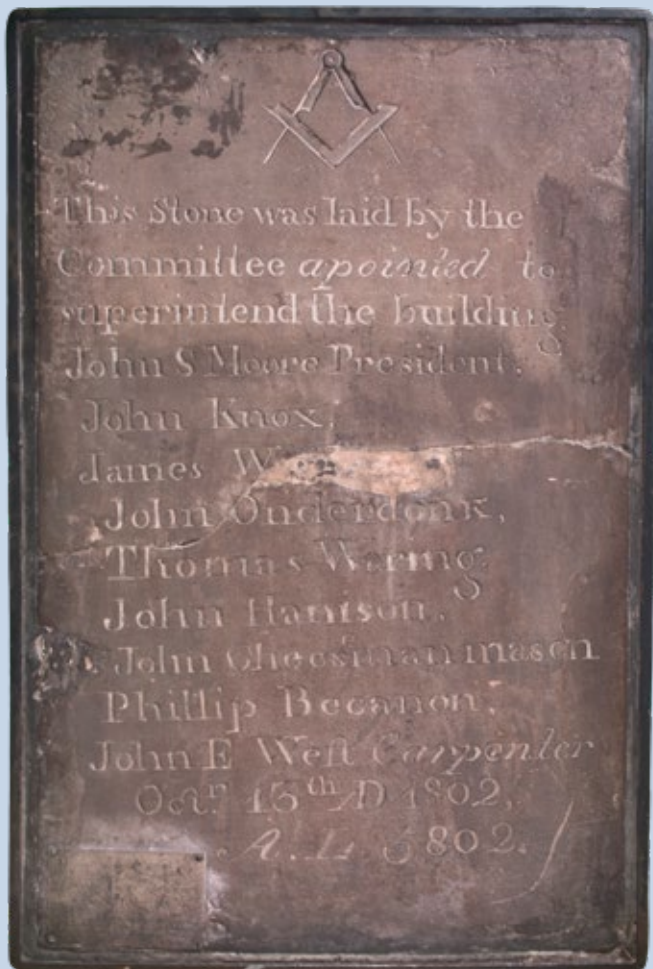 This Stone was laid by the
Committee apointed to
superintend the building
John S Moore President.
John Knox,
James
John Onderdonk,
Thomas Waring
John
John Cheesman mason
Phillip Becanon,
John E West Carpenter
Octr. 15th AD 1802,
A. L. 5802.